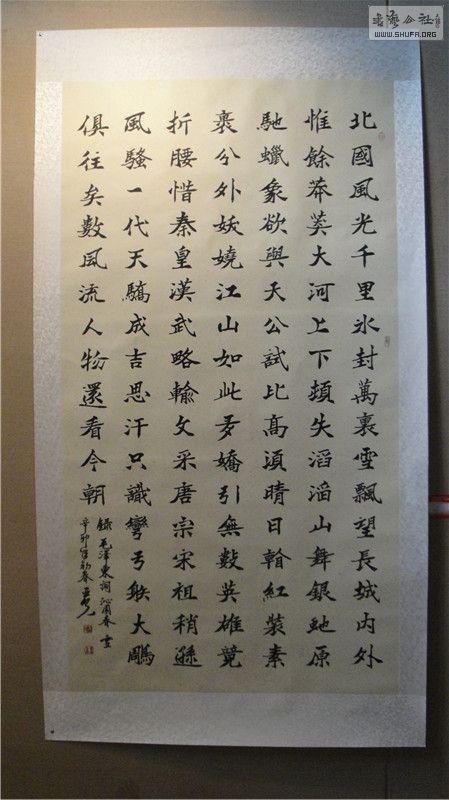 书法公社
WWW.SHUFA.ORG
北國風光千里氷封萬裏雪飄望長城内外
惟餘莽莽大河上下頓失滔滔山舞銀虵原
馳蠟象欲與天公試比高須晴日看紅裝素
裹分外妖嬈江山如此多嬌引無數英雄競
折腰惜秦皇漢武略輸文采唐宗宋祖稍遜
風騷一代天驕成吉思汗只識彎弓射大鵰
俱往矣數風流人物還看今朝
錄毛澤東詞沁園春雪
辛卯年初春